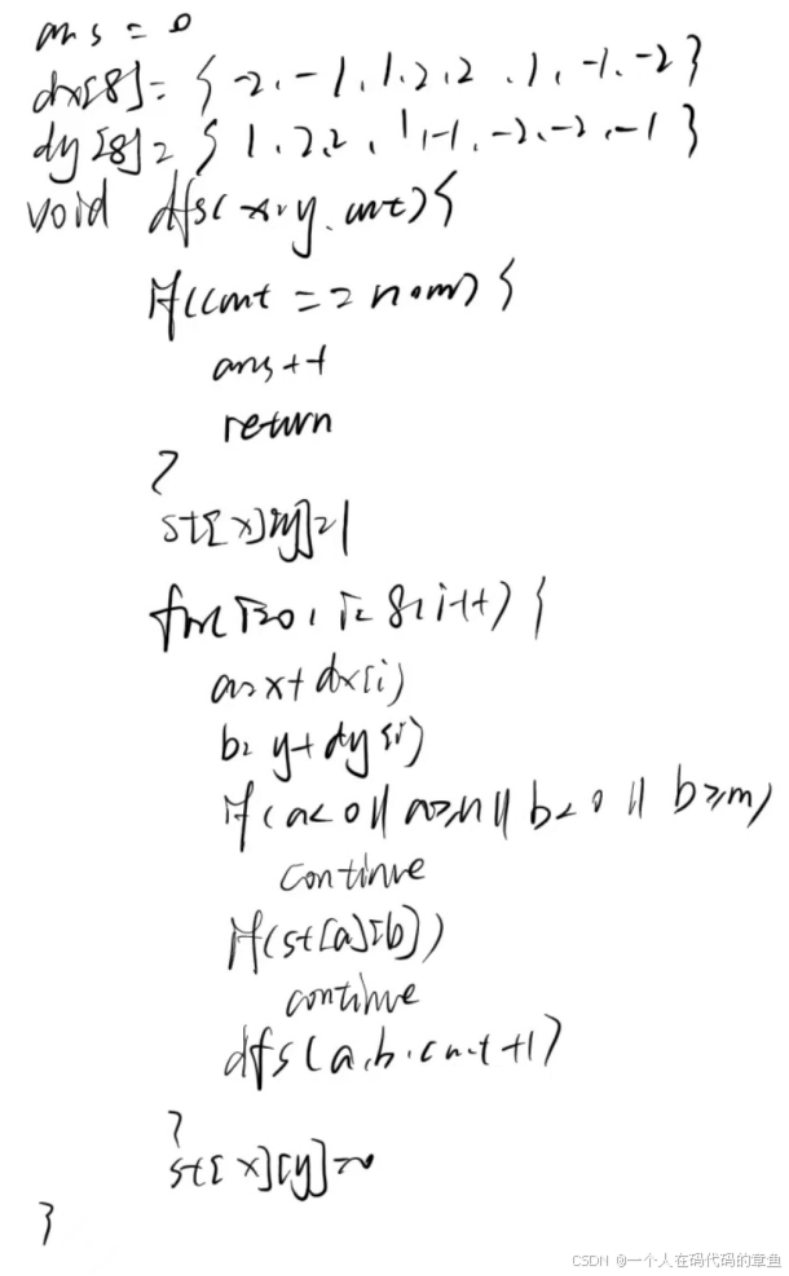 ans = 0
dx[8] = { -2, -1, 1, 2, 2, 1, -1, -2 }
dy[8] = { 1, 2, 2, 1, -1, -2, -2, -1 }
void dfs(x, y, cnt){
if(cnt == n*m) {
ans++
return
}
st[x][y]=1
for(i=0; i<8; i++) {
a=x+dx[i]
b=y+dy[i]
if(a<0||a>=n||b<0||b>=m)
continue
if(st[a][b])
continue
dfs(a,b,cnt+1)
}
st[x][y]=0
}
CSDN @一个人在码代码的章鱼